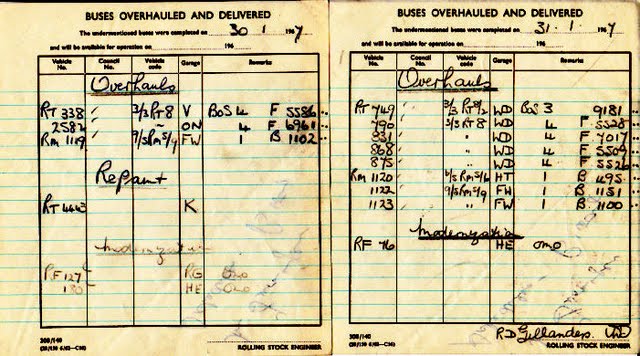 BUSES OVERHAULED AND DELIVERED
The undermentioned buses were completed on 30 . 1 . 1967
and will be available for operation on 196
Vehicle No. Council No. Vehicle code Garage Remarks
Overhauls
RT 338 " 3/3 RT 8 V BOS 4 F 5586
2582 " " ON 4 F 6961
RM 1119 " 9/5 RM 5/9 FW 1 B 1102
Repaint
RT 4443 K
Modernization
RF 127 RG OMO
130 HE OMO
308/140
ROLLING STOCK ENGINEER
BUSES OVERHAULED AND DELIVERED
The undermentioned buses were completed on 31 . 1 . 1967
and will be available for operation on 196
Vehicle No. Council No. Vehicle code Garage Remarks
Overhauls
RT 749 " WD BOS 3 9181
790 " 3/3 RT 8 WD 4 F 5528
831 " " WD 4 F 7017
868 " " WD 4 F 5509
875 " " WD 4 F 5526
RM 1120 " HT 1 B 495
1122 " 9/5 RM 5/9 FW 1 B 1151
1123 " " FW 1 B 1100
Modernization
RF 76 HE OMO
308/140
R D Gillanders.
ROLLING STOCK ENGINEER